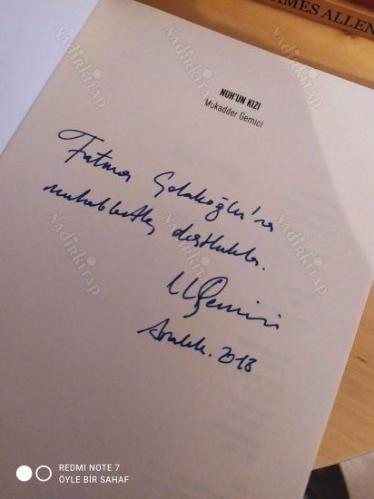 JAMES ALLEN
NUH'UN KIZI
Mukadder Gemici
Fatma Çolakoğlu'na
muhabbetle, dostlukla.
MGemici
Aralık. 2018
nadirkitap
REDMI NOTE 7
ÖYLE BİR SAHAF